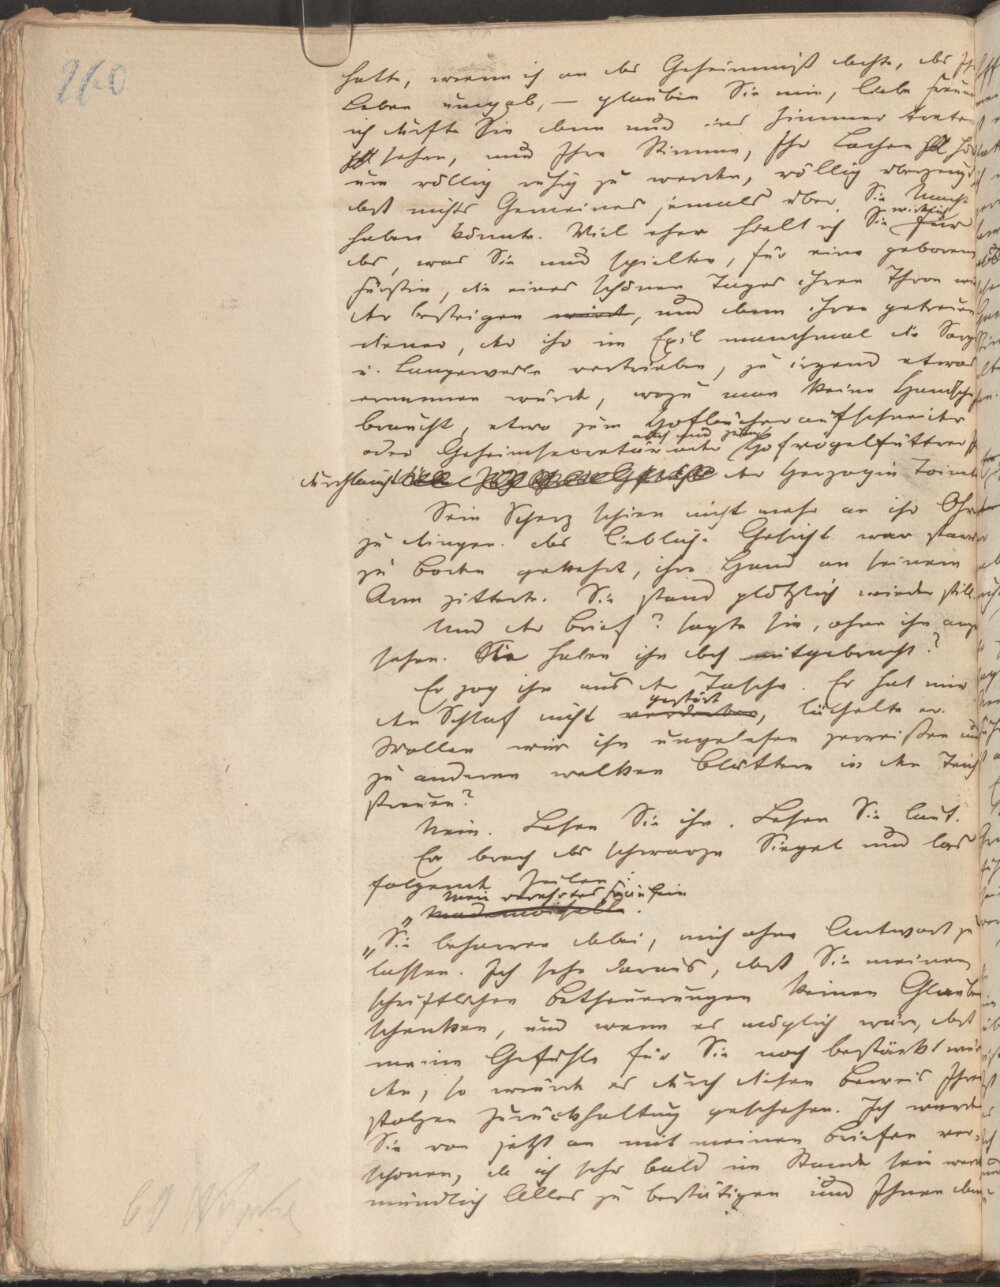 260
hatte, wenn ich an das Geheimniß dachte, das Ihr
Leben umgab, — glauben Sie mir, liebe Freun
ich durfte Sie dann nur ins Zimmer treten
sehen, und Ihre Stimme, Ihr Lachen hö
um völlig ruhig zu werden, völlig überzeugt
daß nichts Gemeines jemals über Sie Macht
haben könnte. Viel eher hielt ich Sie wirklich für
das, was Sie nur spielten, für eine geborene
Fürstin, die eines schönen Tages ihren Thron wie
der besteigen wird, und dann ihren getreuen
Diener, der ihr im Exil manchmal die Sorge
u. Langeweile vertrieben, zu irgend etwas
ernennen würde, wozu man keine Handschuh
braucht, etwa zum Hofbücheraufschneider
oder Geheimsecretär oder Hofvögelfütterer
Durchlaucht der Herzogin Toinette
Sein Scherz schien nicht mehr an ihr Ohr
zu dringen. Das liebliche Gesicht war starr
zu Boden gekehrt, ihre Hand an seinem
Arm zitterte. Sie stand plötzlich wieder still.
Und der Brief? sagte sie, ohne ihn anzu
sehen. Sie haben ihn doch mitgebracht?
Er zog ihn aus der Tasche. Er hat mir
den Schlaf nicht verdorben gestört, lächelte er.
Wollen wir ihn ungelesen zerreißen und
zu anderen welken Blättern in den Teich
streuen?
Nein. Lesen Sie ihn. Lesen Sie laut.
Er brach das schwarze Siegel und las
folgende Zeilen:
Mein verehrtes Fräulein
„Mademoiselle.
„Sie beharren dabei, mich ohne Antwort zu
lassen. Ich sehe daraus, daß Sie meinen
schriftlichen Betheuerungen keinen Glauben
schenken, und wenn es möglich wäre, daß
meine Gefühle für Sie noch bestärkt wür
den, so würde es durch diesen Beweis Ihrer
stolzen Zurückhaltung geschehen. Ich werde
Sie von jetzt an mit meinen Briefen ver-
schonen, da ich sehr bald im Stande sein werde
mündlich Alles zu bestätigen und Ihnen dann